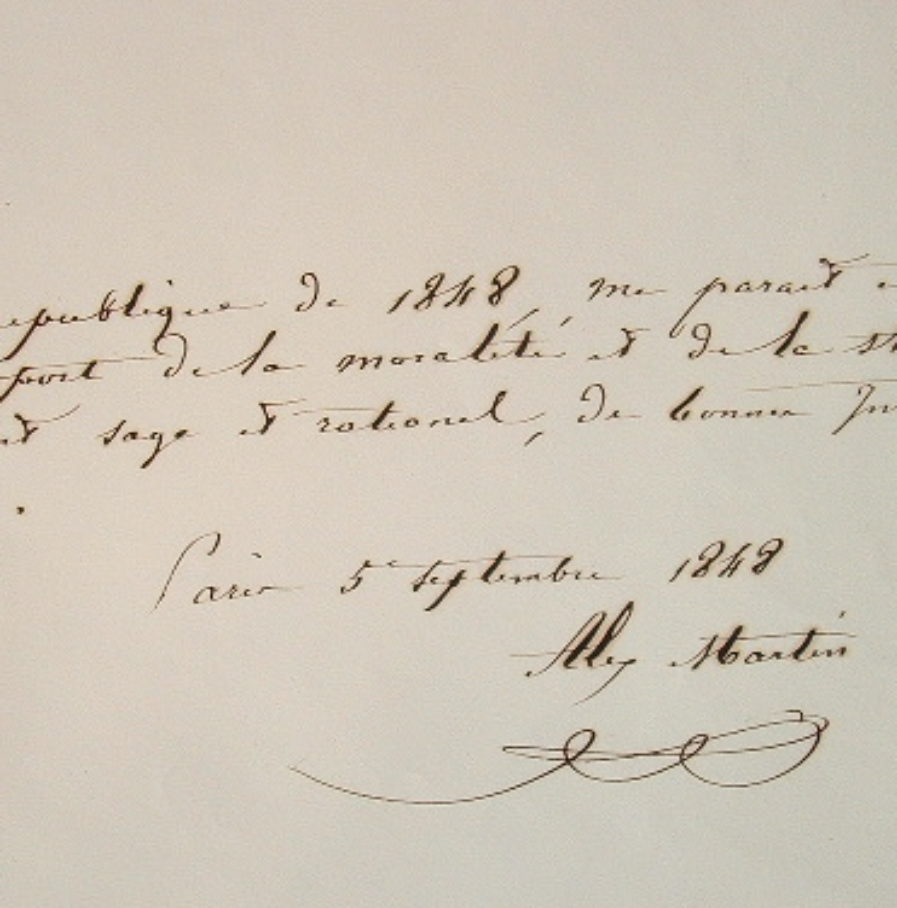 epublique de 1848, me parait
port de la moralité et de la st
et sage et rationel, de bonner
.
Paris 5e septembre 1848
Alex Martin